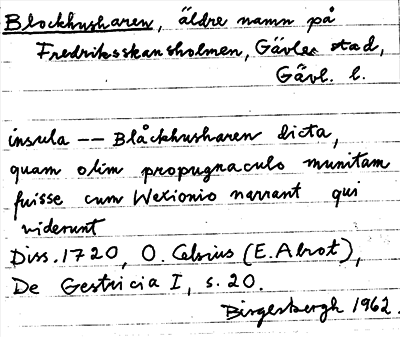 Blockhusharen, äldre namn på
Fredriksskansholmen, Gävle stad,
Gävl. l.
insula -- Blåckhusharen dicta,
quam olim propugnaculo munitam
fuisse cum Wexionio narrant qui
viderunt
Diss. 1720, O. Celsius (E. Abrot),
De Gestricia I, s. 20.
Birgerbergh 1962.